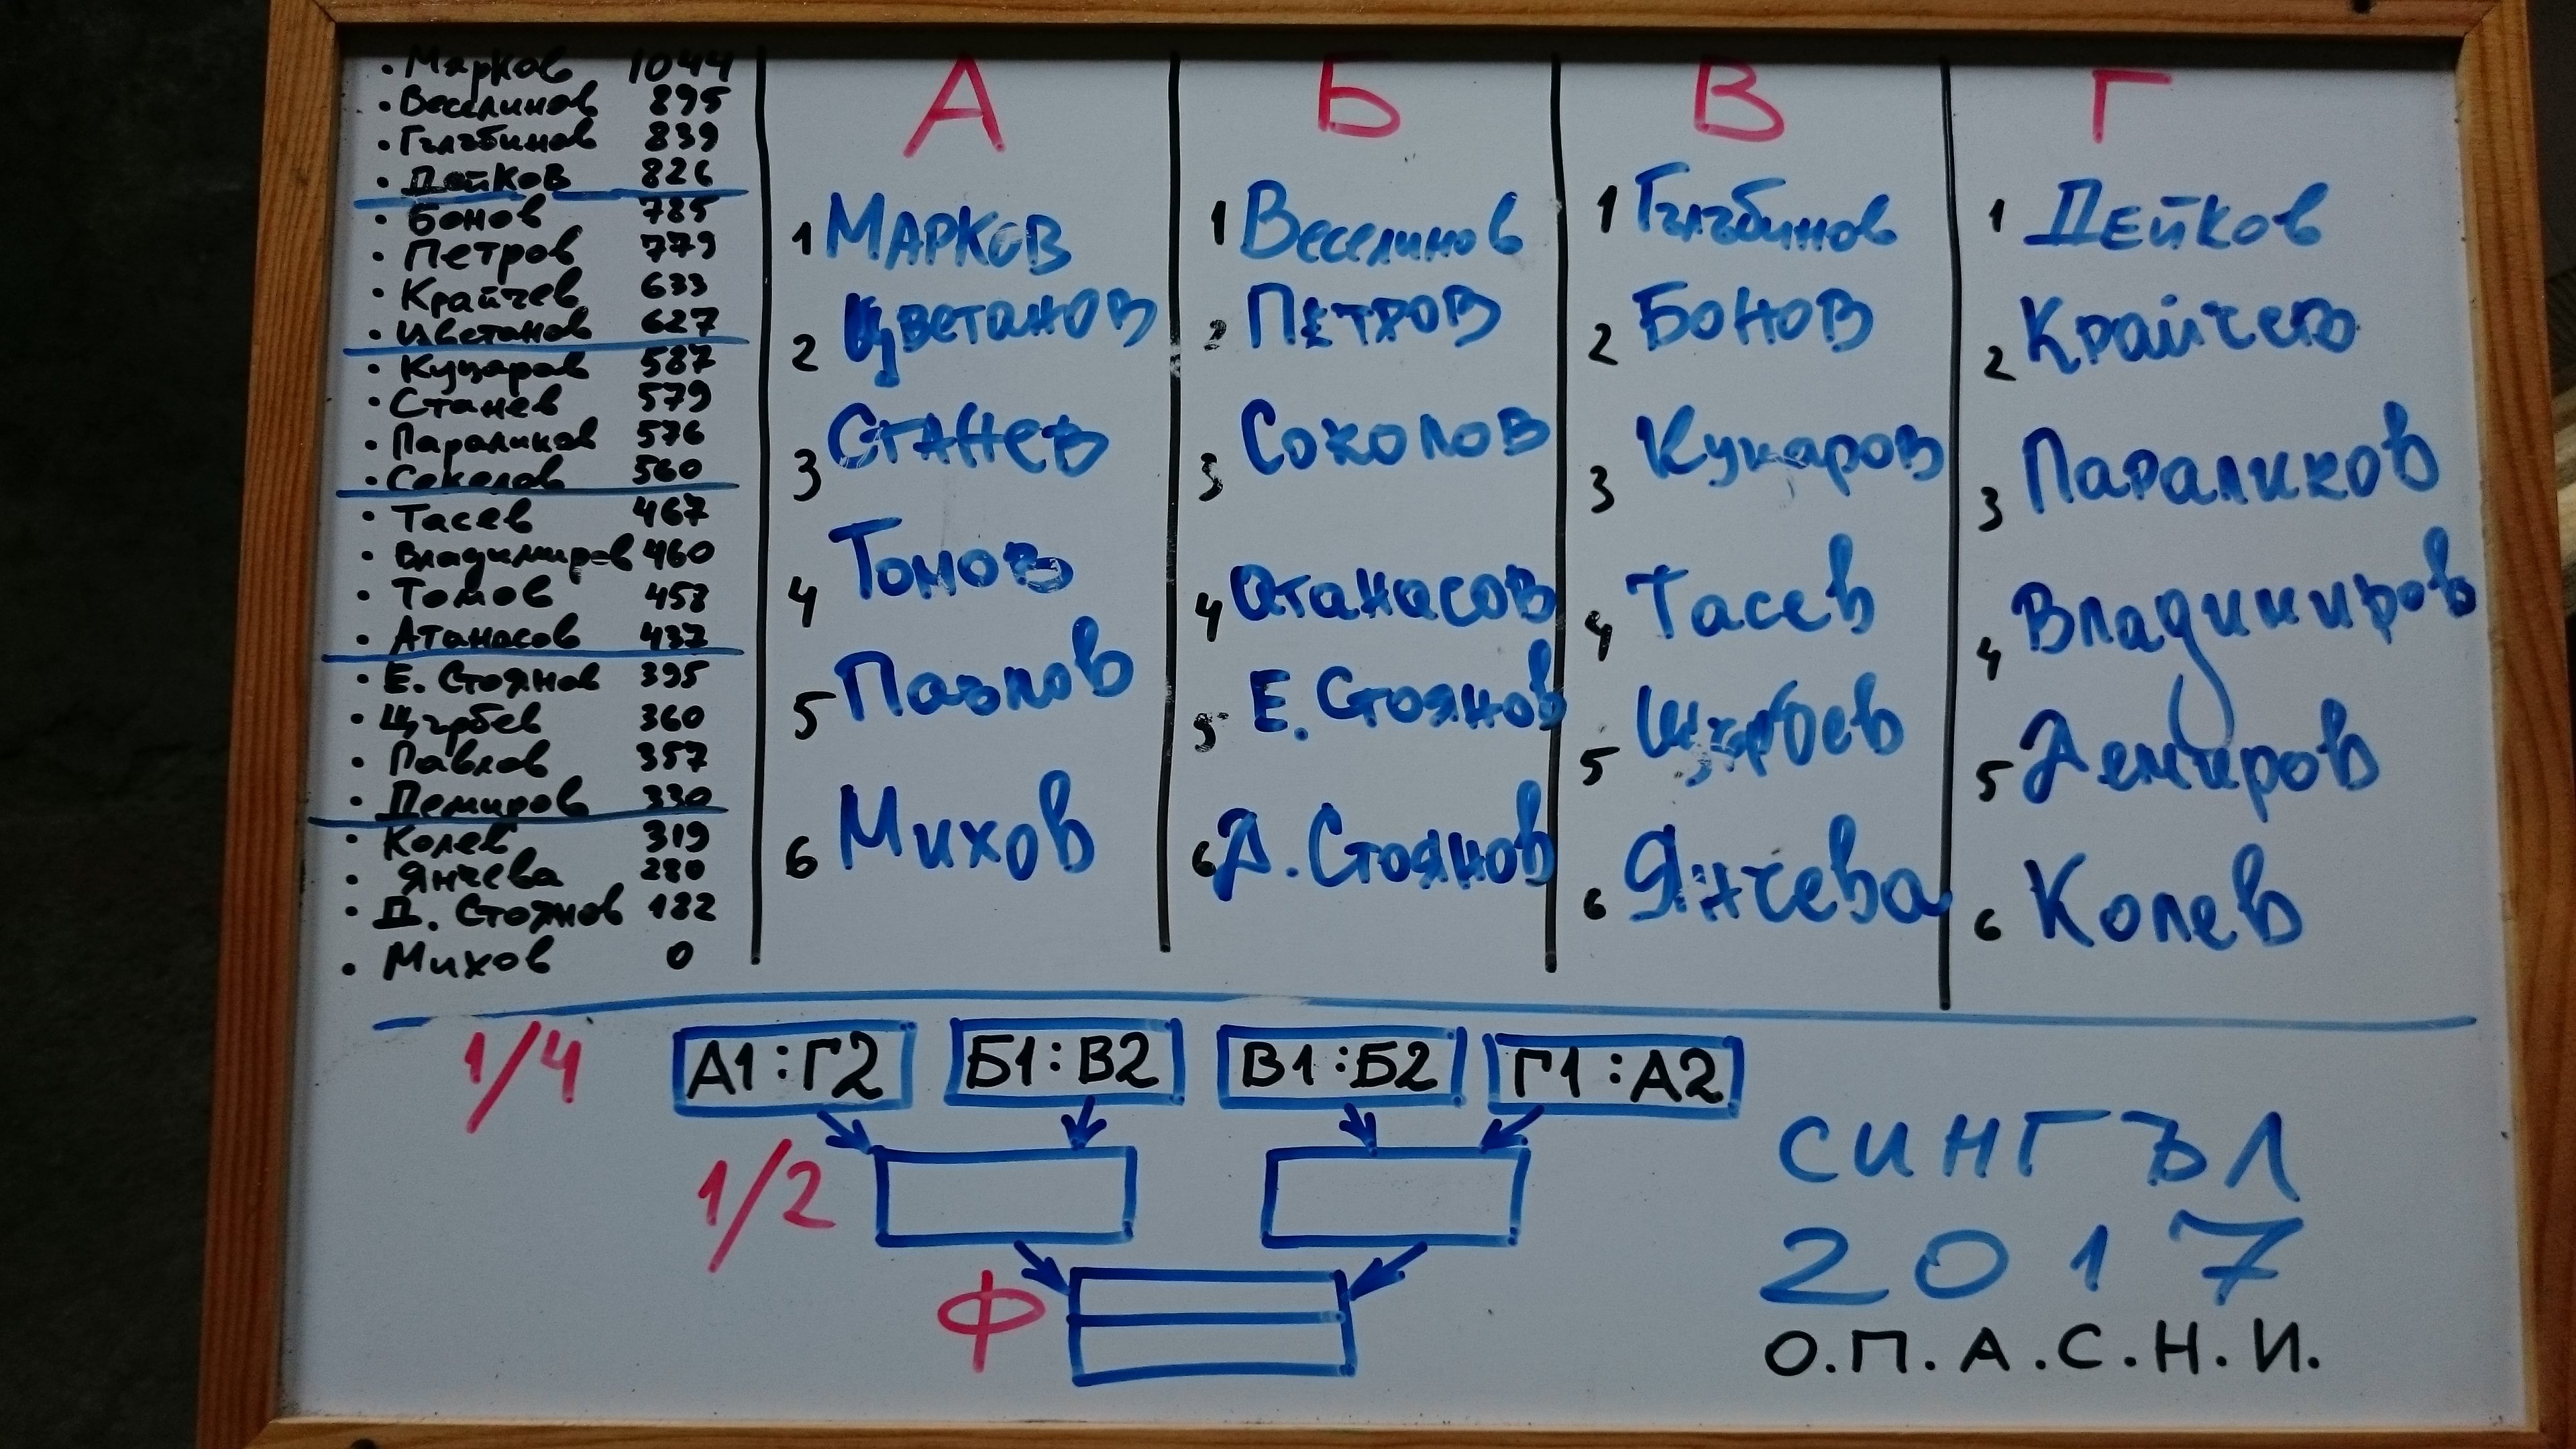 • Марков 1044
• Веселинов 895
• Гълъбинов 839
• Дейков 826
• Бонов 785
• Петров 779
• Крайчев 633
• Цветанов 627
• Куцаров 587
• Станев 579
• Параликов 576
• Соколов 560
• Тасев 467
• Владимиров 460
• Томов 458
• Атанасов 437
• Е. Стоянов 395
• Щърбев 360
• Павлов 357
• Демиров 330
• Колев 319
• Янчева 280
• Д. Стоянов 182
• Михов 0
А
1 Марков
2 Цветанов
3 Станев
4 Томов
5 Павлов
6 Михов
Б
1 Веселинов
2 Петров
3 Соколов
4 Атанасов
5 Е. Стоянов
6 Д. Стоянов
В
1 Гълъбинов
2 Бонов
3 Куцаров
4 Тасев
5 Щърбев
6 Янчева
Г
1 Дейков
2 Крайчев
3 Параликов
4 Владимиров
5 Демиров
6 Колев
1/4 А1:Г2 Б1:В2 В1:Б2 Г1:А2
1/2
Ф
СИНГЪЛ
2017
О.П.А.С.Н.И.